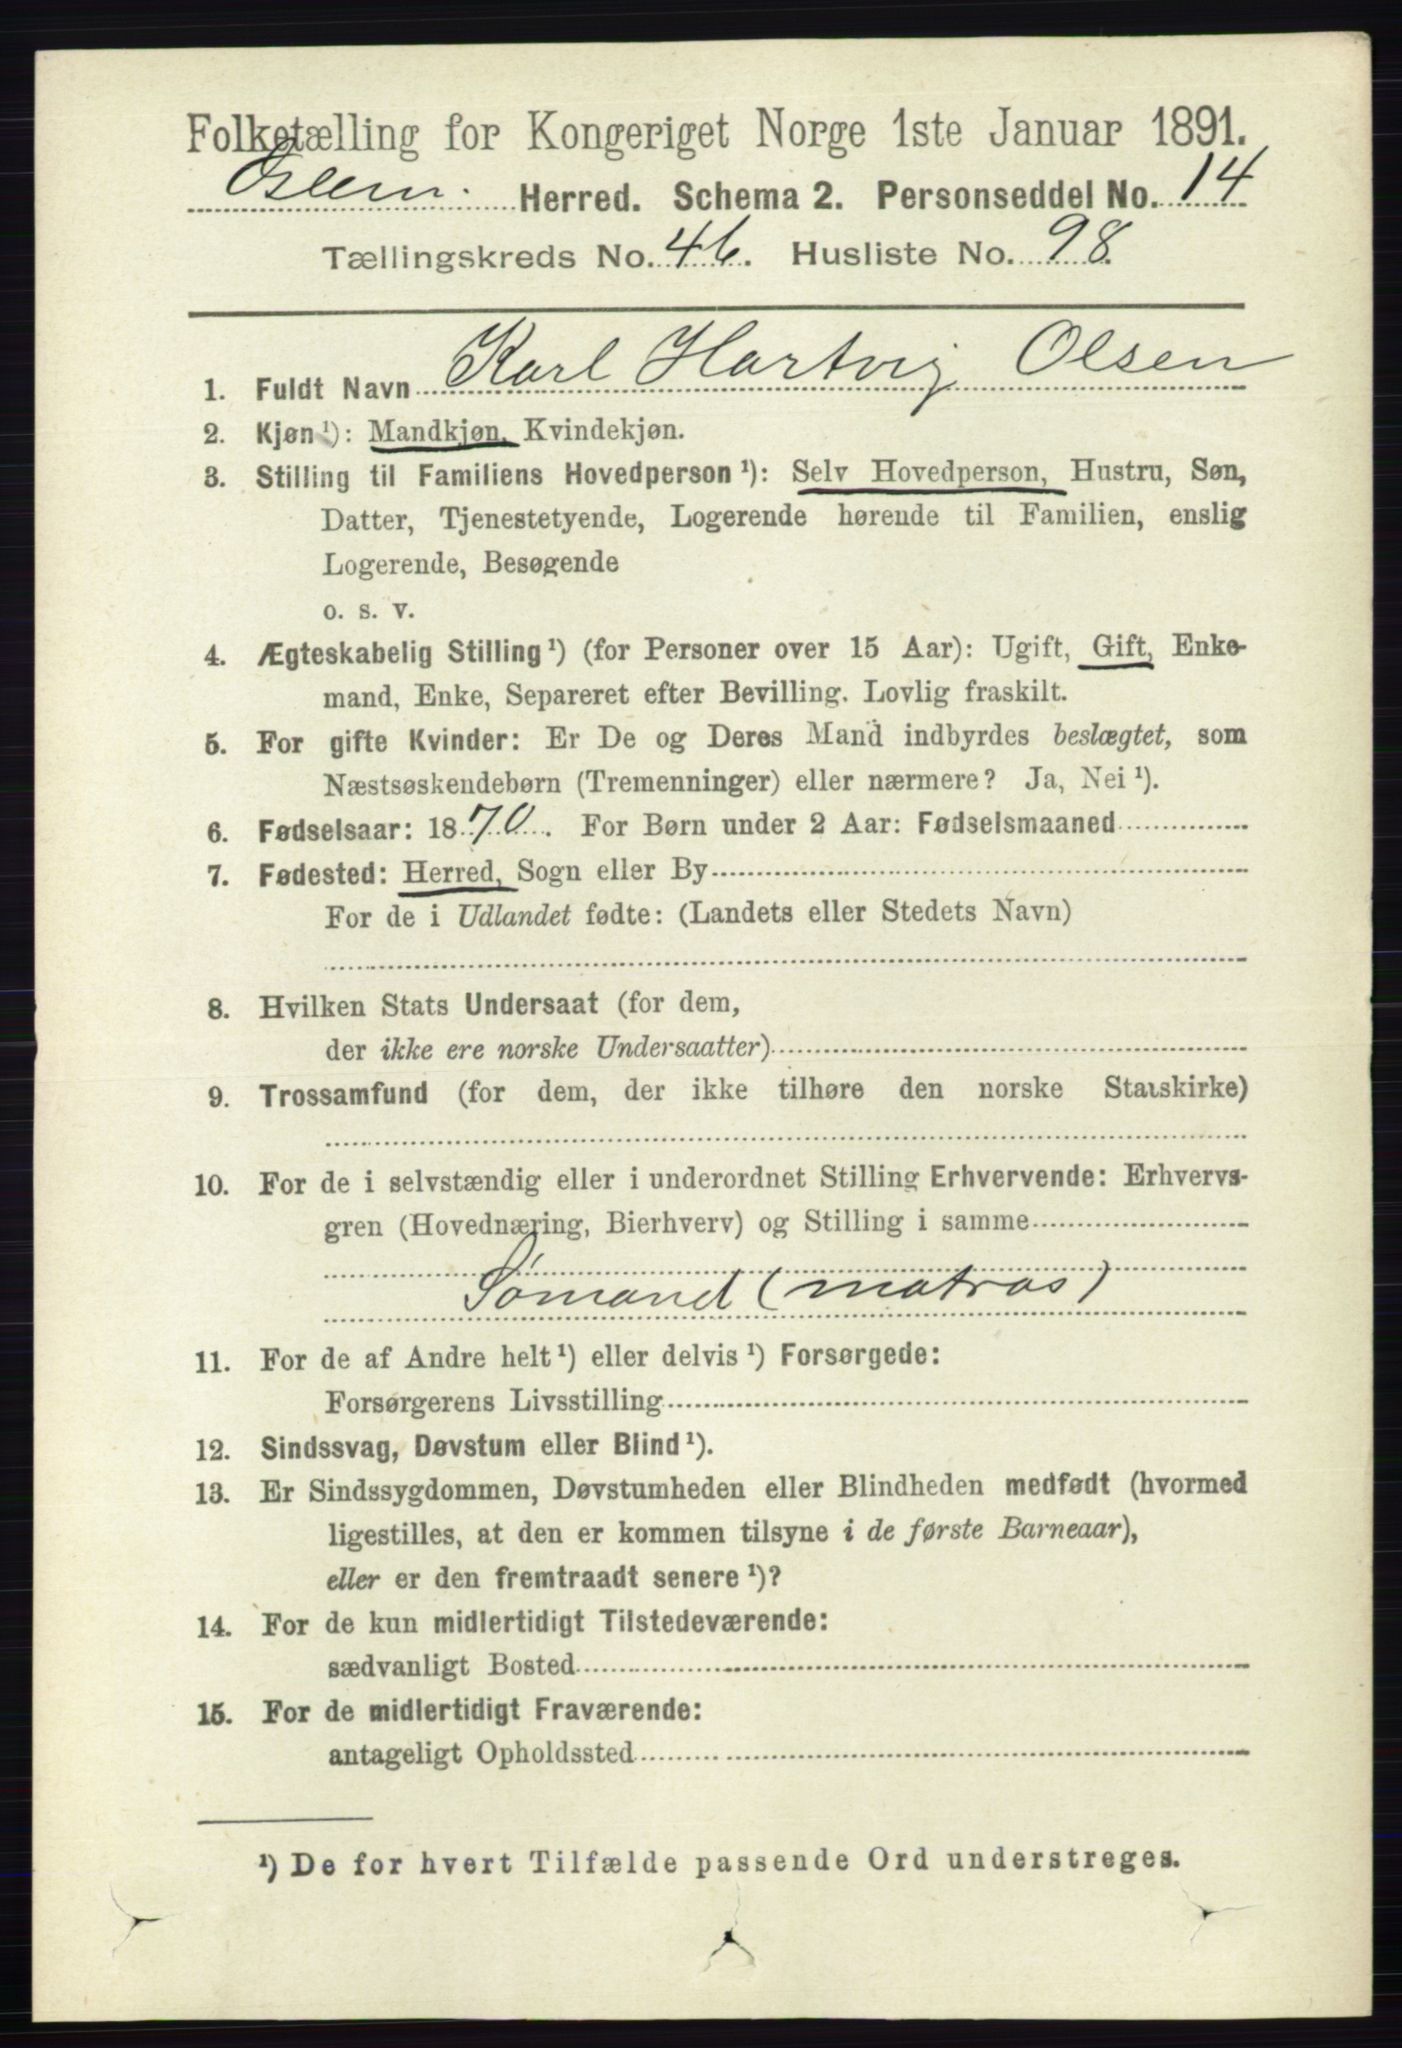 Folketælling for Kongeriget Norge 1ste Januar 1891.
Herred. Schema 2. Personseddel No. 14
Tællingskreds No. 46. Husliste No. 98.
1. Fuldt Navn Karl Hartvig Olsen
2. Kjøn ¹): Mandkjøn, Kvindekjøn.
3. Stilling til Familiens Hovedperson ¹): Selv Hovedperson, Hustru, Søn,
Datter, Tjenestetyende, Logerende hørende til Familien, enslig
Logerende, Besøgende
o. s. v.
4. Ægteskabelig Stilling ¹) (for Personer over 15 Aar): Ugift, Gift, Enke-
mand, Enke, Separeret efter Bevilling. Lovlig fraskilt.
5. For gifte Kvinder: Er De og Deres Mand indbyrdes beslægtet, som
Næstsøskendebørn (Tremenninger) eller nærmere? Ja, Nei ¹).
6. Fødselsaar: 1870. For Børn under 2 Aar: Fødselsmaaned
7. Fødested: Herred, Sogn eller By
For de i Udlandet fødte: (Landets eller Stedets Navn)
8. Hvilken Stats Undersaat (for dem,
der ikke ere norske Undersaatter)
9. Trossamfund (for dem, der ikke tilhøre den norske Statskirke)
10. For de i selvstændig eller i underordnet Stilling Erhvervende: Erhvervs-
gren (Hovednæring, Bierhverv) og Stilling i samme
Sømand (matros)
11. For de af Andre helt ¹) eller delvis ¹) Forsørgede:
Forsørgerens Livsstilling
12. Sindssvag, Døvstum eller Blind ¹).
13. Er Sindssygdommen, Døvstumheden eller Blindheden medfødt (hvormed
ligestilles, at den er kommen tilsyne i de første Barneaar),
eller er den fremtraadt senere ¹)?
14. For de kun midlertidigt Tilstedeværende:
sædvanligt Bosted
15. For de midlertidigt Fraværende:
antageligt Opholdssted
¹) De for hvert Tilfælde passende Ord understreges.